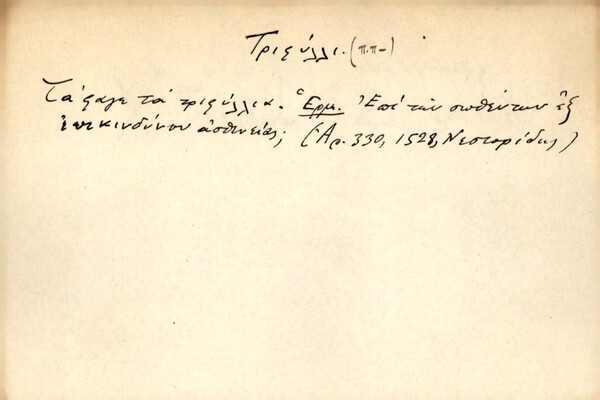 Τριφύλλι. (π.π-)
Τά φαγε τα τριφύλλια. Ἑρμ. Ἐπί τῶν σωθέντων ἐξ
ἐπικινδύνου ἀσθενείας; (Ἀρ. 330, 1528, Νεστορίδης)